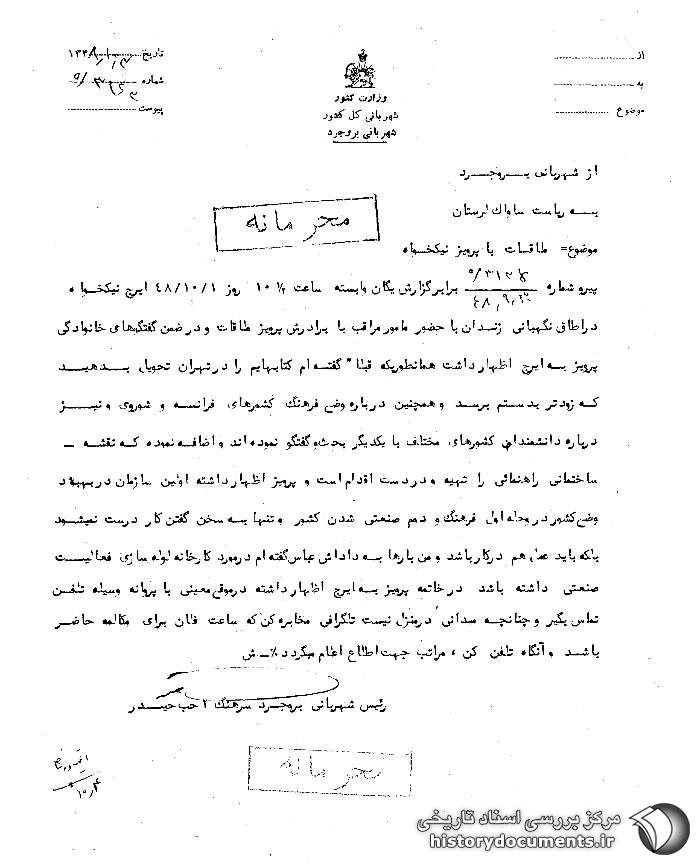 تاریخ ۱۳۴۸
شماره
پیوست
از
به
موضوع
وزارت کشور
شهربانی کل کشور
شهربانی بروجرد
از شهربانی بروجرد
به ریاست ساواک لرستان
محرمانه
موضوع= ملاقات با پرویز نیکخواه
پیرو شماره برابر گزارش یگان وابسته ساعت ۱۰ روز ۴۸/۱۰/۱ ایرج نیکخواه
در اطاق نگهبانی زندان با حضور مامور مراقب با برادرش پرویز ملاقات و در ضمن گفتگوهای خانوادگی
پرویز به ایرج اظهار داشت همانطوریکه قبلا" گفته ام کتابهایم را در تهران تحویل بدهید
که زودتر بدستم برسد و همچنین درباره وضع فرهنگ کشورهای فرانسه و شوروی و نیز
درباره دانشمندان کشورهای مختلف با یکدیگر بحث و گفتگو نموده اند و اضافه نموده که نقشه -
ساختمانی راهنمائی را تهیه و در دست اقدام است و پرویز اظهار داشته اولین سازمان در بهبود
وضع کشور در وحله اول فرهنگ و دوم صنعتی شدن کشور و تنها به سخن گفتن کار درست نمیشود
بلکه باید عمل هم در کار باشد و من بارها به داداش عباس گفته ام در مورد کارخانه لوله سازی فعالیت
صنعتی داشته باشد در خاتمه پرویز به ایرج اظهار داشته در موقع معینی با پروانه وسیله تلفن
تماس بگیر و چنانچه در منزل نیست تلگرافی مخابره کن که ساعت فلان برای مکالمه حاضر
باشد و آنگاه تلفن کن ، مراتب جهت اطلاع اعلام میگردد٪ ش
رئیس شهربانی بروجرد سرهنگ ۲ حیدر
محرمانه
۱۰/۴
مرکز بررسی اسناد تاریخی
historydocuments.ir